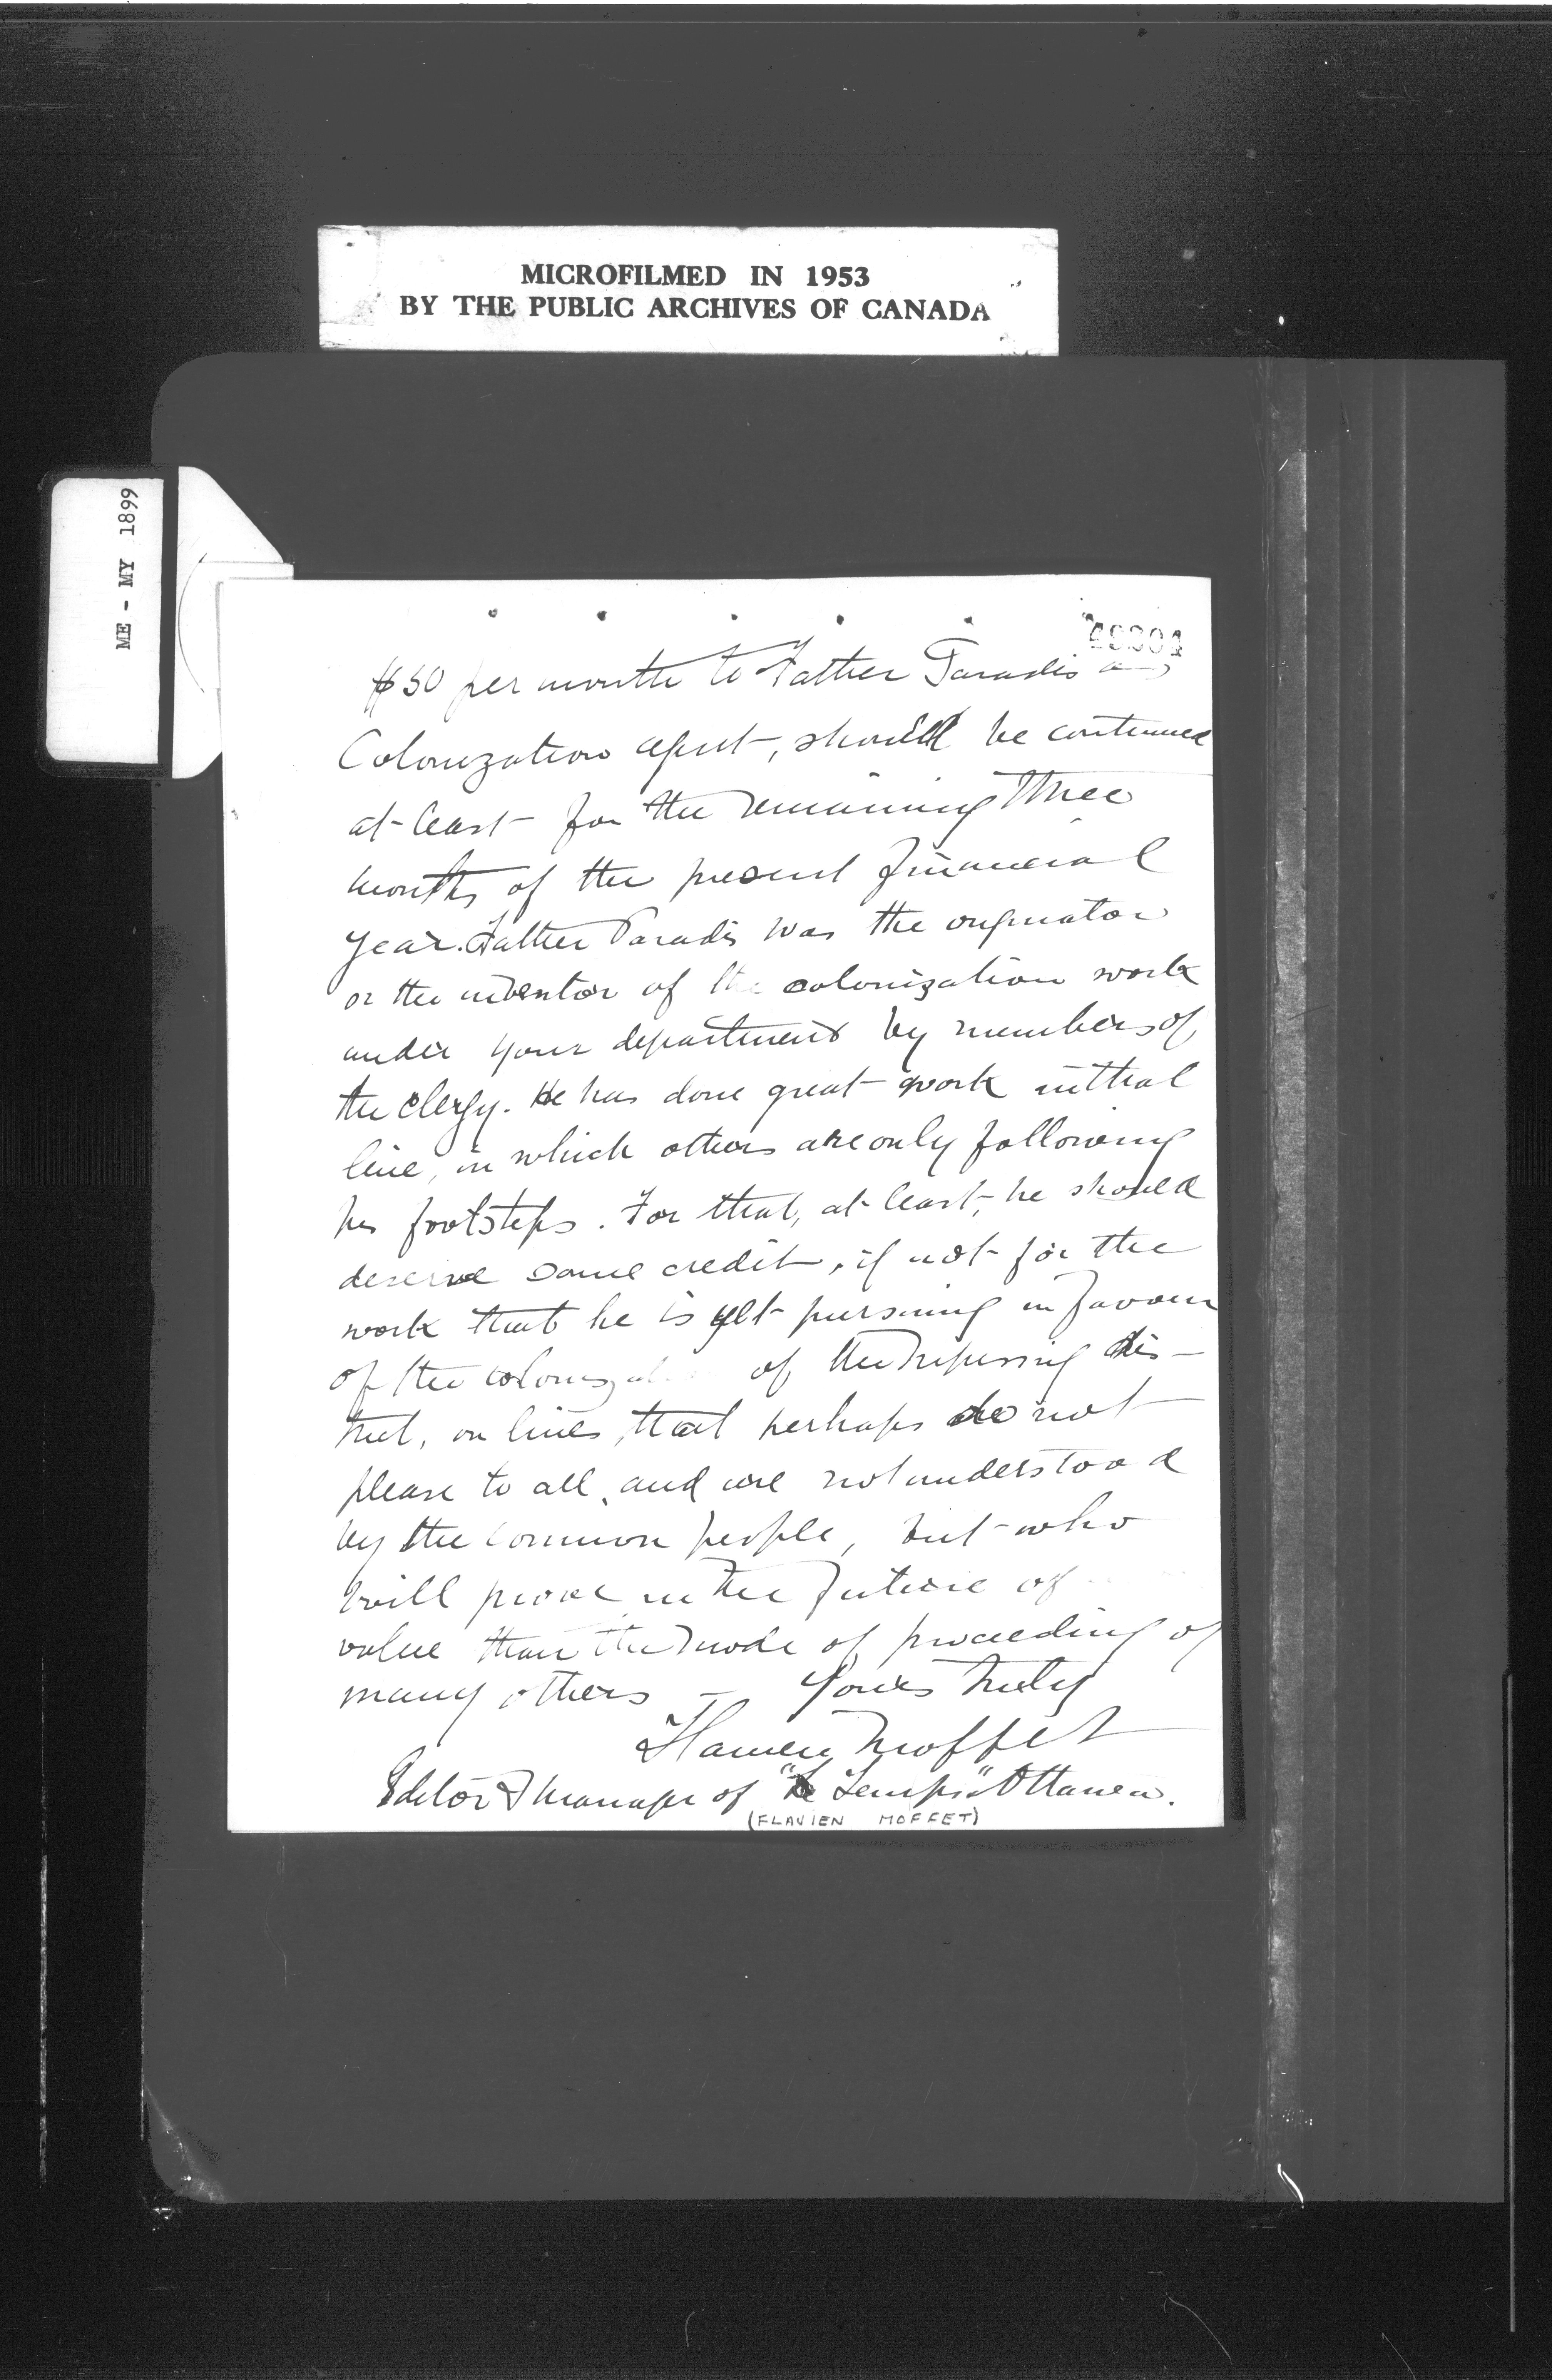 MICROFILMED IN 1953
BY THE PUBLIC ARCHIVES OF CANADA
ME - MY 1899
$50 per month to Father Paradis as
Colonization agent, should be continued
at least for the remaining three
months of the present financial
year. Father Paradis was the originator
or the inventor of the colonization work
under your department by members of
the clergy. He has done great work in that
line, in which others are only following
his footsteps. For that, at least, he should
deserve some credit, if not for the
work that he is yet pursuing in favour
of the of the Nipissing dis-
trict, on lines, that perhaps do not
please to all, and are not understood
by the common people, but who
will prove in the future of
value than the mode of proceeding of
many others – Yours truly
Flavien Moffet
Editor & manager of "Le Temps" Ottawa.
(FLAVIEN MOFFET)